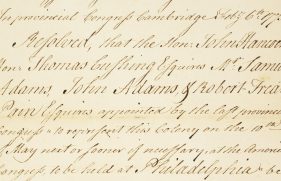 In provincial Congress Cambridge Feby 6th 177
Resolved, that the Hon. John Hancock
Hon. Thomas Cushing Esquires Mr. Samuel
Adams, John Adams, & Robert Treat
Pain Esquires appointed by the last provincial
Congress to represent this Colony on the 10th
of May next or sooner if necessary, at the American
Congress to be held at Philadelphia be